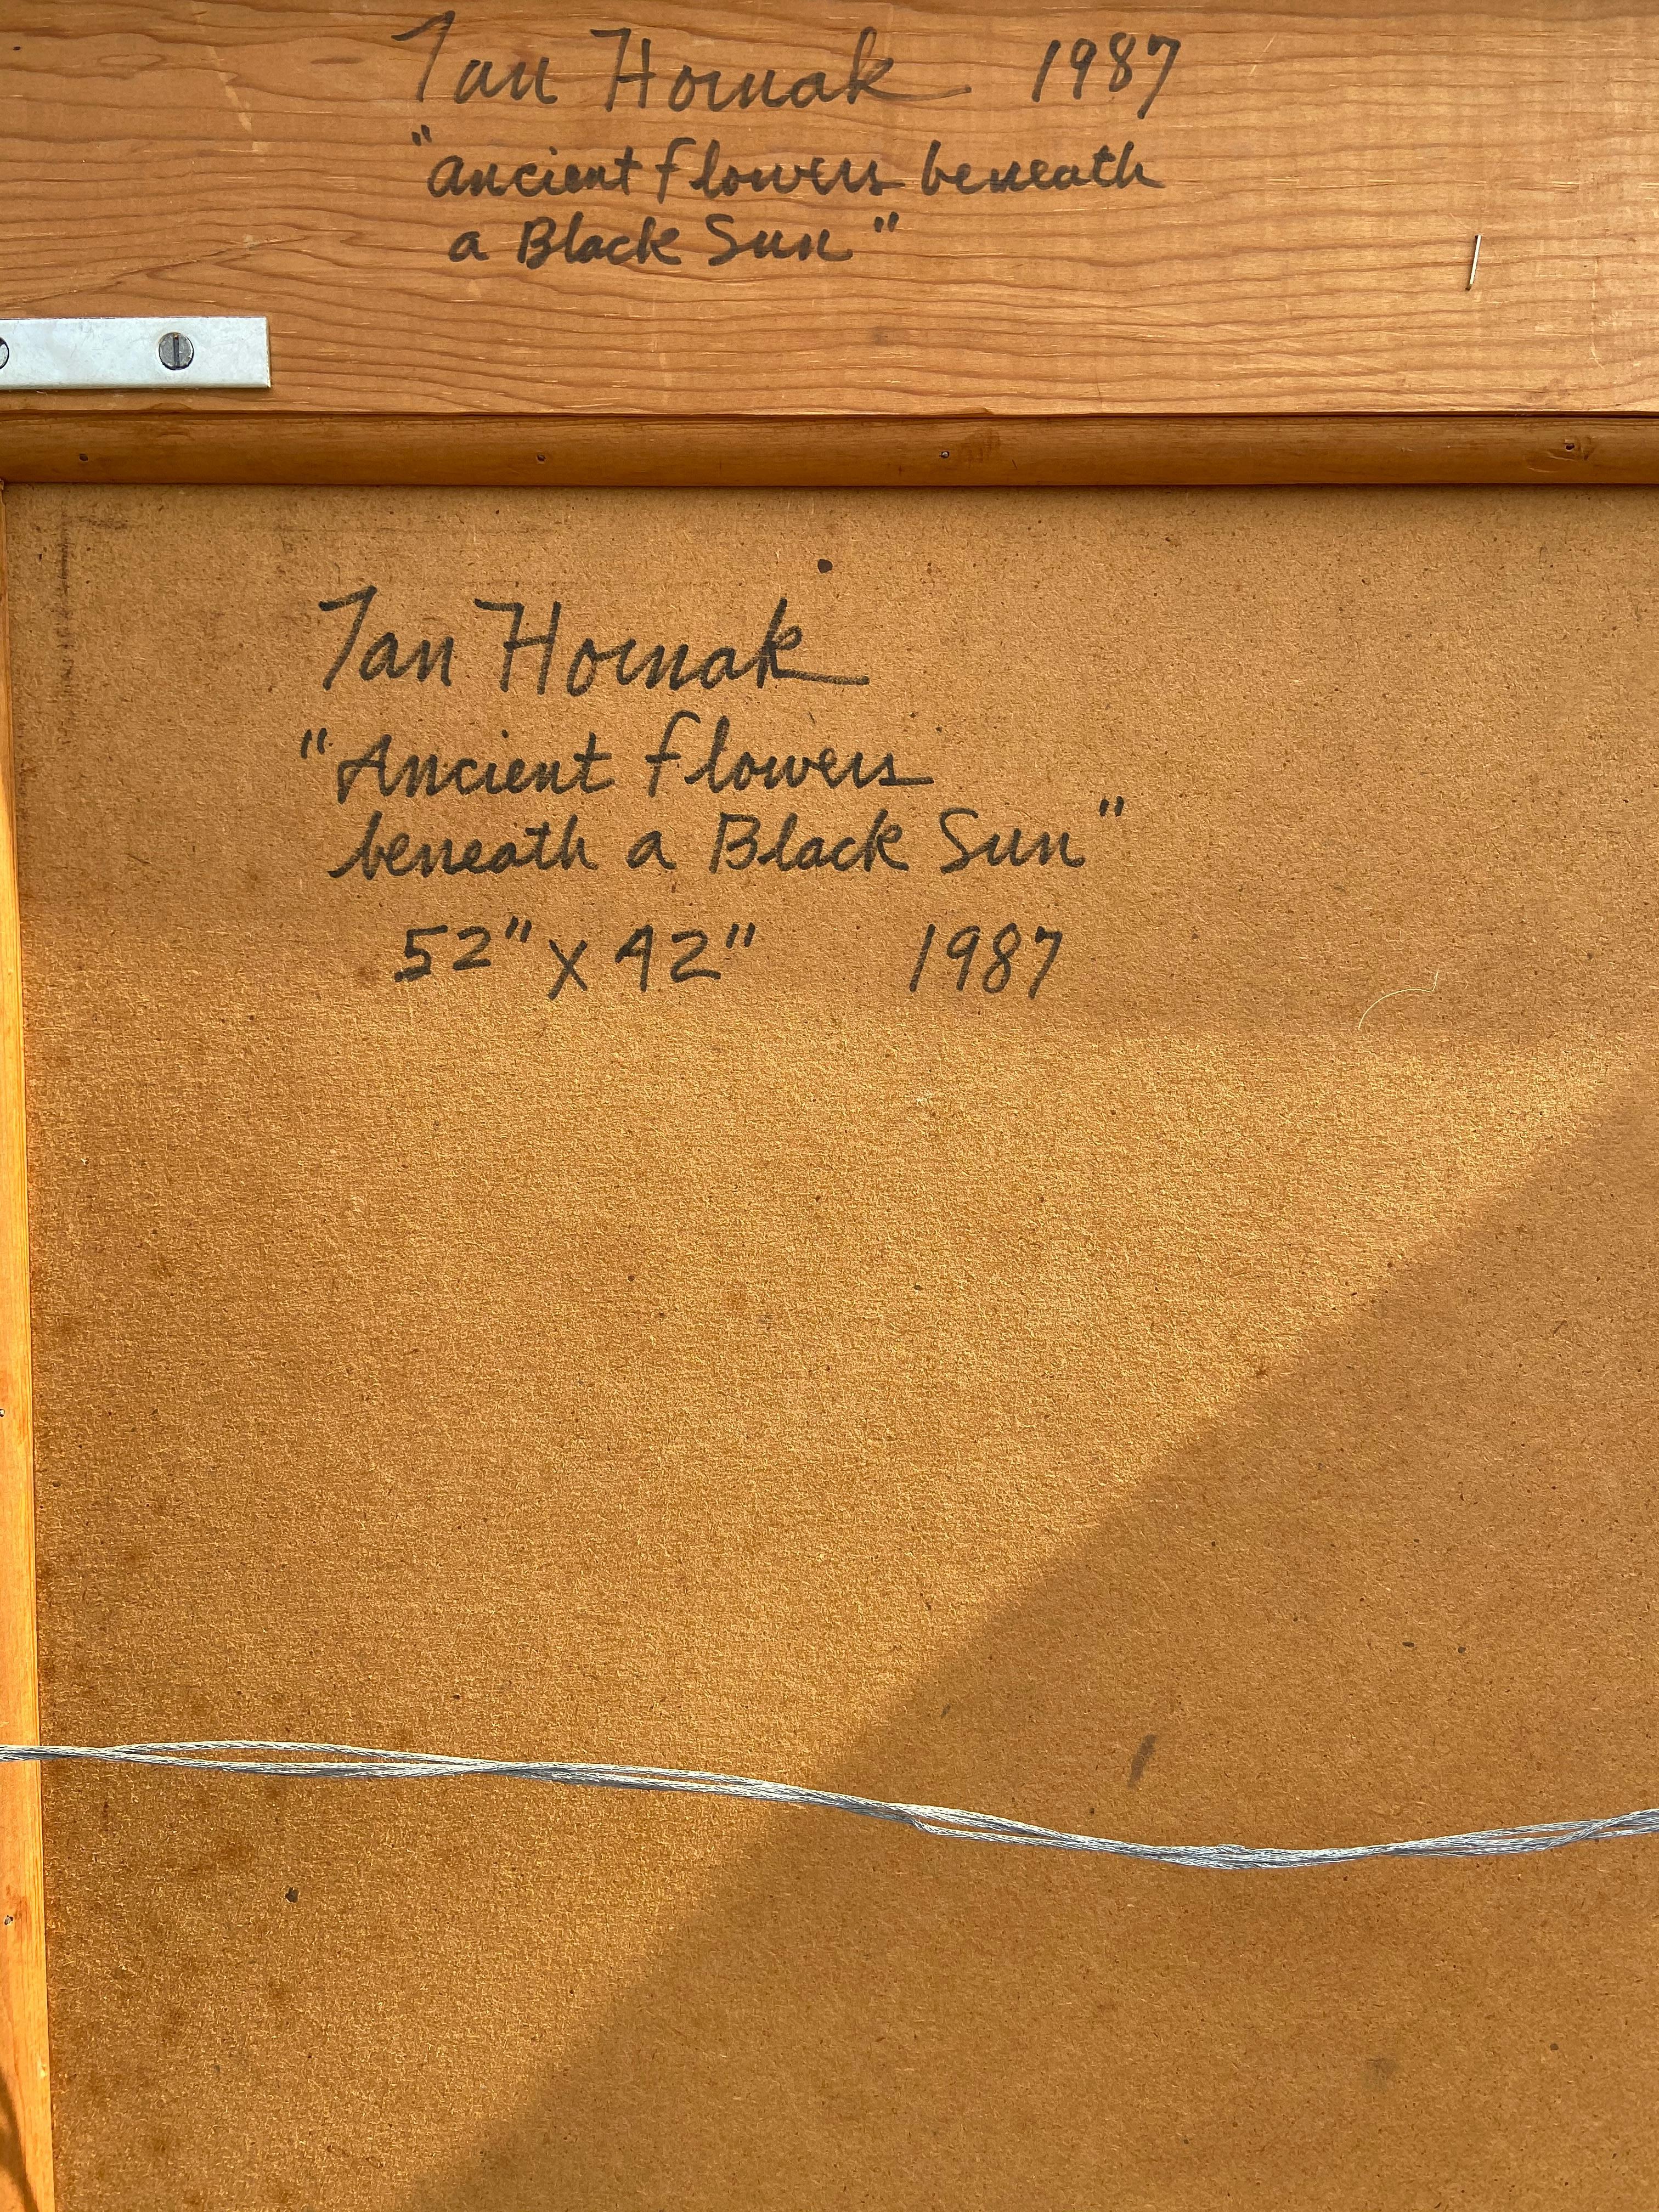 Ian Hornak 1987
"ancient flowers beneath
a Black Sun"
Ian Hornak
"Ancient flowers
beneath a Black Sun"
52" x 42" 1987